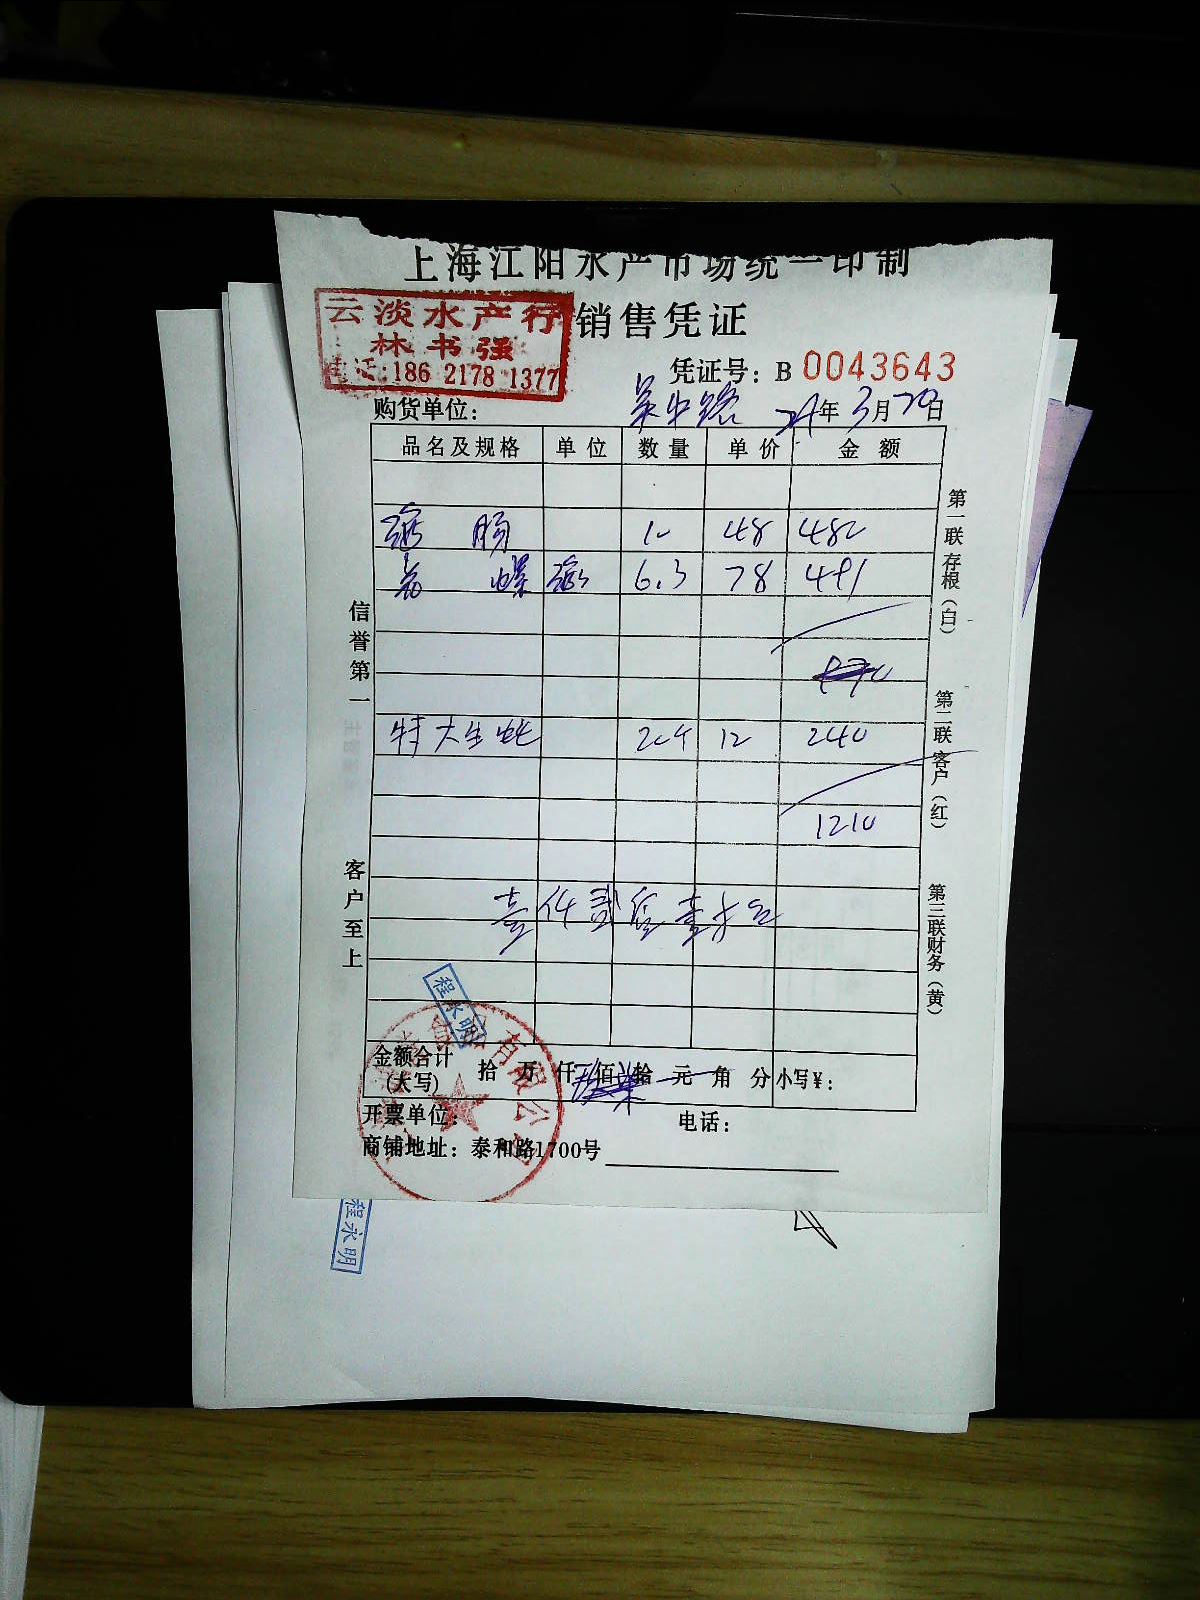 上海江阳水产市场统一印制
销售凭证
云淡水产行
林书强
电话:186 2178 1377
凭证号: B 0043643
购货单位: 吴中路 年3月20日
品名及规格 单位 数量 单价 金额
肠 48
螺 6.3 78 491
特大生蚝 12 240
1210
壹仟贰佰壹拾元
信誉第一
客户至上
第一联存根(白)
第二联客户(红)
第三联财务(黄)
程永明
有限公司
金额合计(大写) 拾 万 仟 佰 拾 元 角 分 小写¥:
开票单位: 电话:
商铺地址: 泰和路1700号
程永明